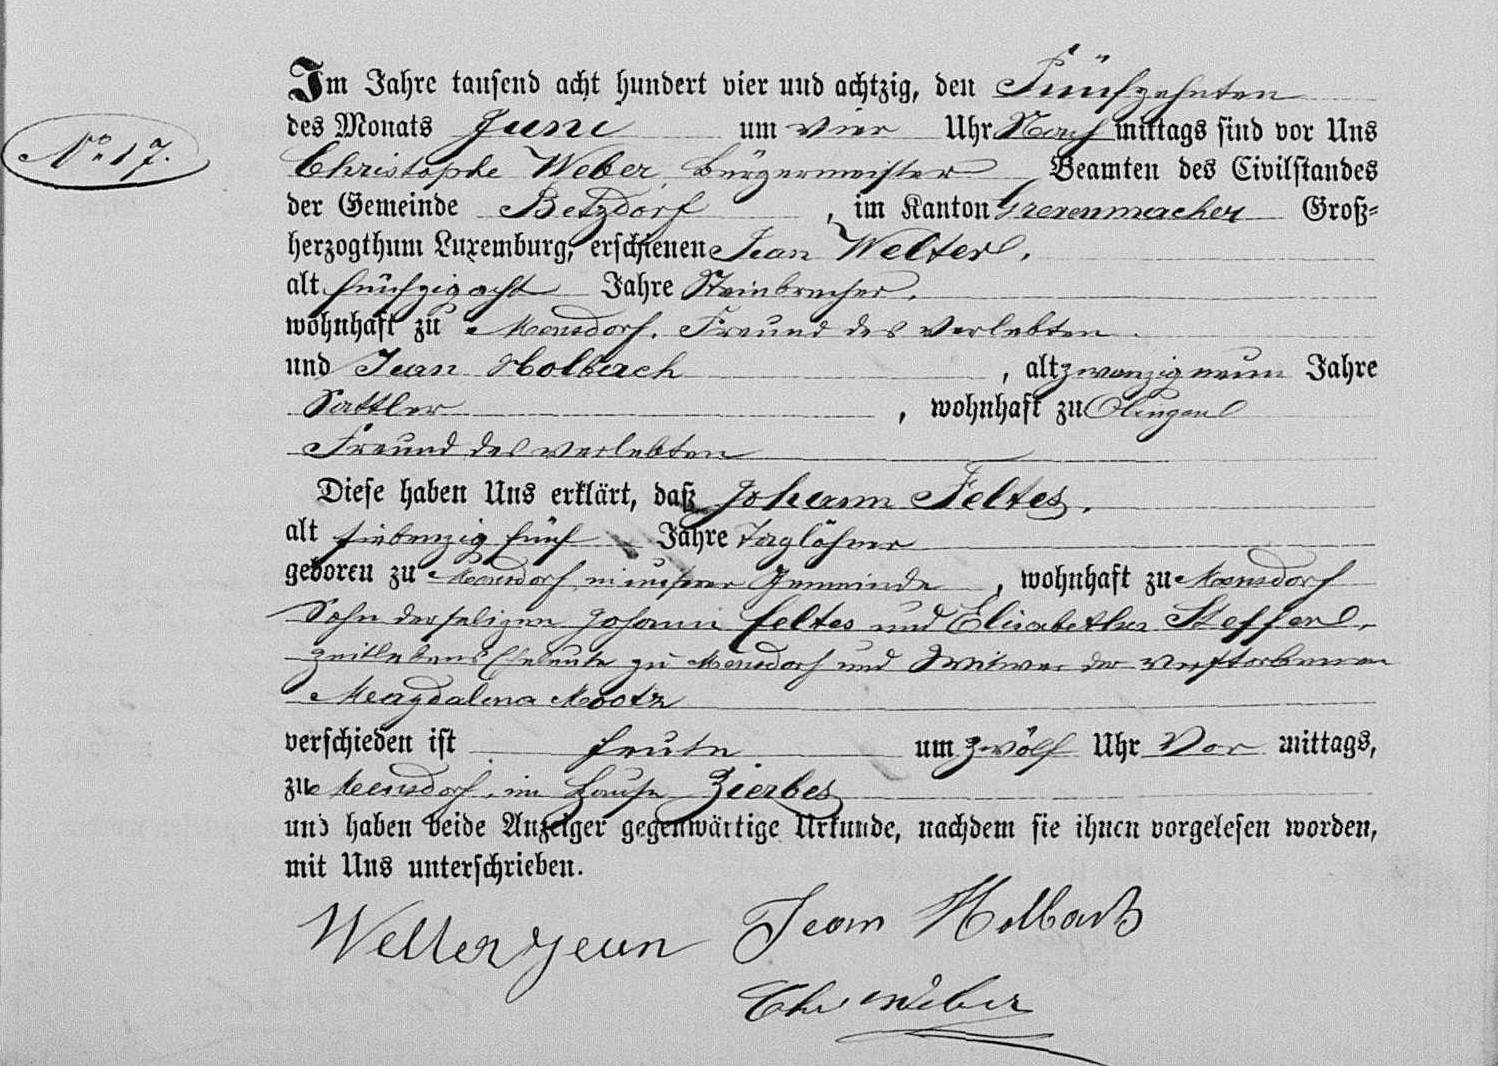 Im Jahre tausend acht hundert vier und achtzig, den Fünfzehnten
No 17.
des Monats Juni um vier Uhr Nach mittags sind vor Uns
Christophe Weber, Bürgermeister Beamten des Civilstandes
der Gemeinde Betzdorf, im Kanton Grevenmacher Groß=
herzogthum Luxemburg, erschienen Jean Welter,
alt fünfzig acht Jahre Steinbrecher,
wohnhaft zu Mensdorf, Freund des Verlebten
und Jean Holbach, alt zwanzig neun Jahre
Sattler, wohnhaft zu Olingen
Freund des Verlebten
Diese haben Uns erklärt, daß Johann Feltes,
alt siebenzig fünf Jahre Taglöhner
geboren zu Mensdorf in unserer Gemeinde, wohnhaft zu Mensdorf
Sohn der seligen Johann Feltes und Elisabetha Steffen,
zeitlebens Eheleute zu Mensdorf und Witwer der verstorbenen
Magdalena Mootz
verschieden ist heute um zwölf Uhr Vor mittags,
zu Mensdorf, im Hause Zierbes
und haben beide Anzeiger gegenwärtige Urkunde, nachdem sie ihnen vorgelesen worden,
mit Uns unterschrieben.
Welter Jean Jean Holbach
Chr Weber